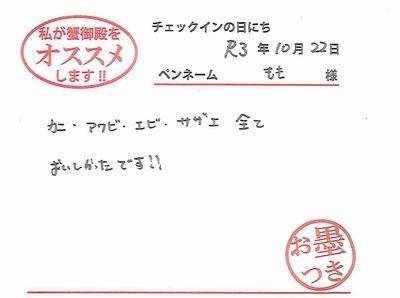 私が蟹御殿を
オススメ
します!!
チェックインの日にち
R3 年 10 月 22 日
ペンネーム もも 様
カニ・アワビ・エビ・サザエ 全て
おいしかったです!!
お墨
つき